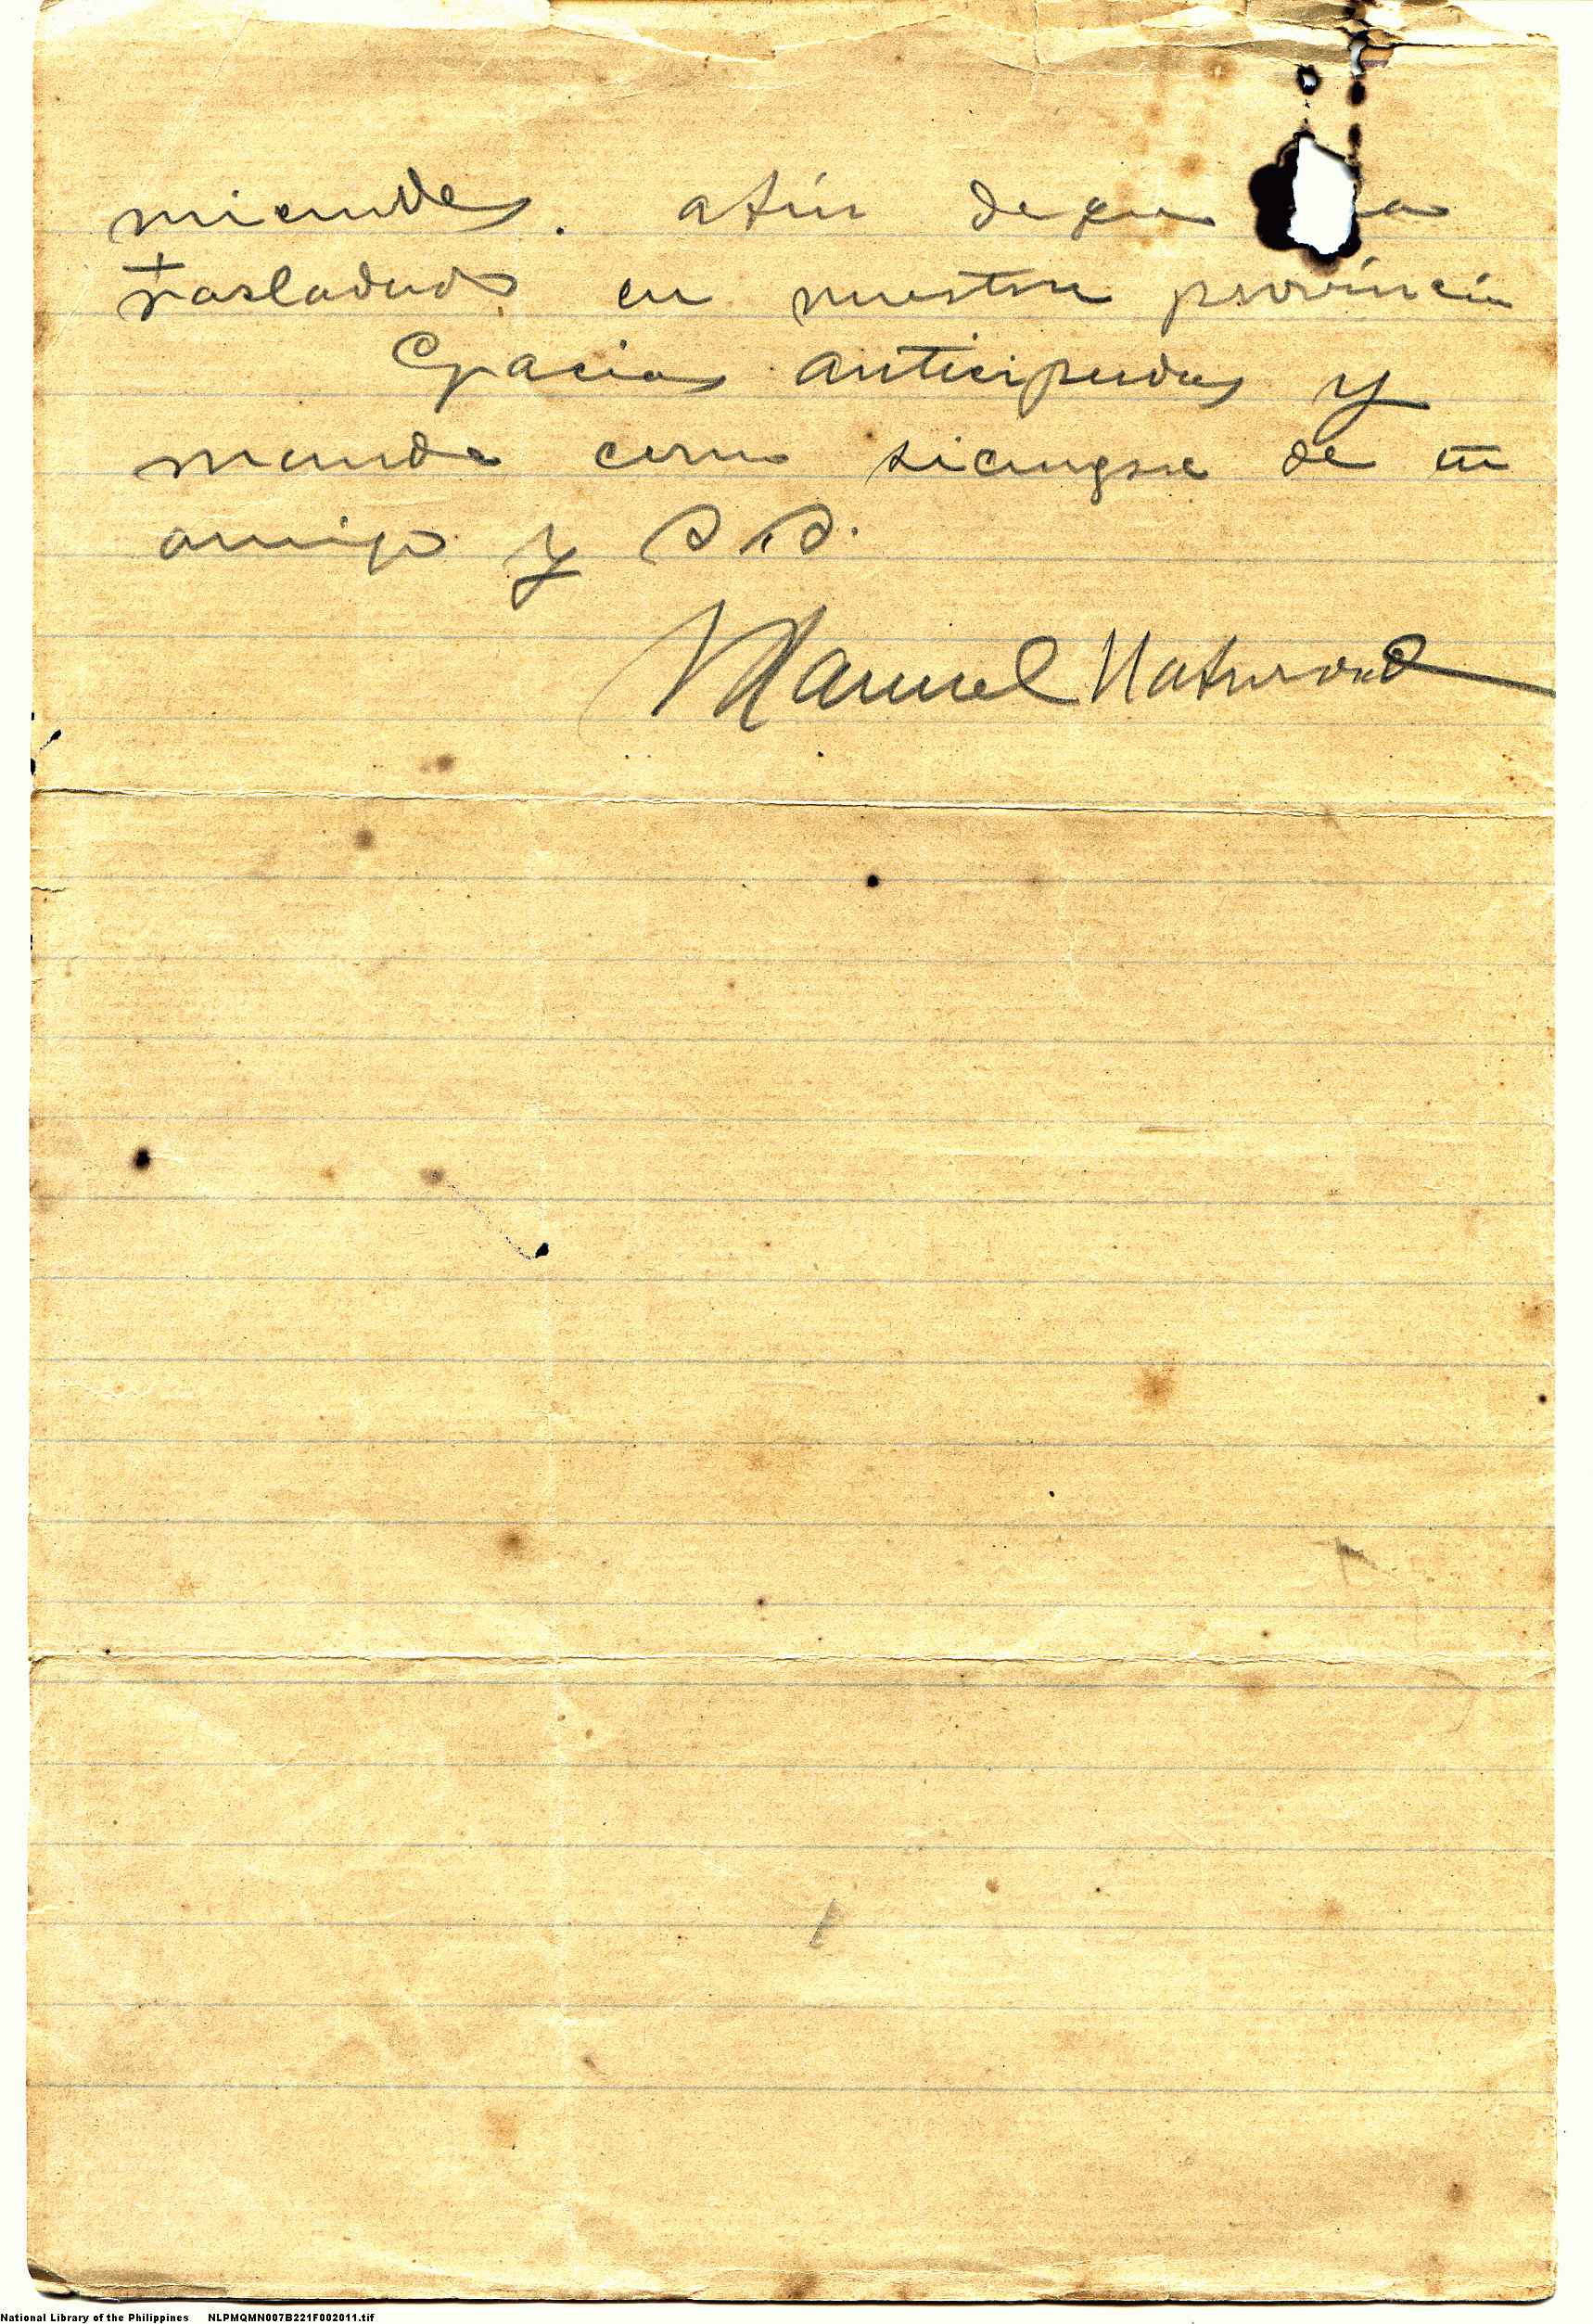 miendes. afin deque
trasladado en nuestra provincia
Gracias anticipadas y
mande como siempre de tu
amigo y S.S.
Manuel
National Library of the Philippines NLPMQMN007B221F002011.tif